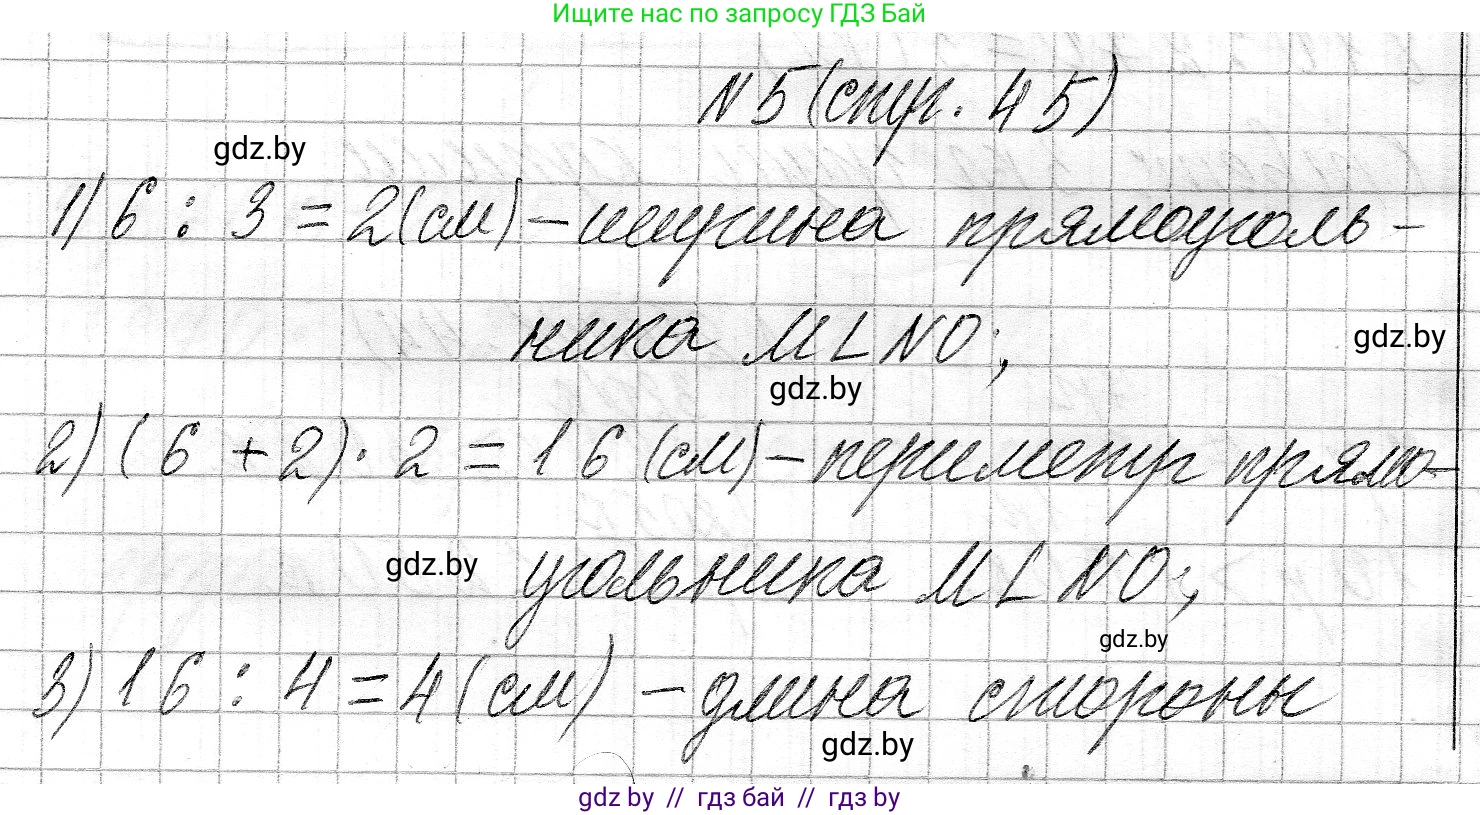 Ищите нас по запросу ГДЗ Бай
N 5 (стр. 45)
gdz.by
1) 6 : 3 = 2 (см) – ширина прямоуголь-
ника MLNO;
gdz.by
gdz.by
2) (6 + 2) · 2 = 16 (см) – периметр прямо-
угольника MLNO;
gdz.by
gdz.by
3) 16 : 4 = 4 (см) – длина стороны
gdz.by
gdz by // гдз бай // гдз by